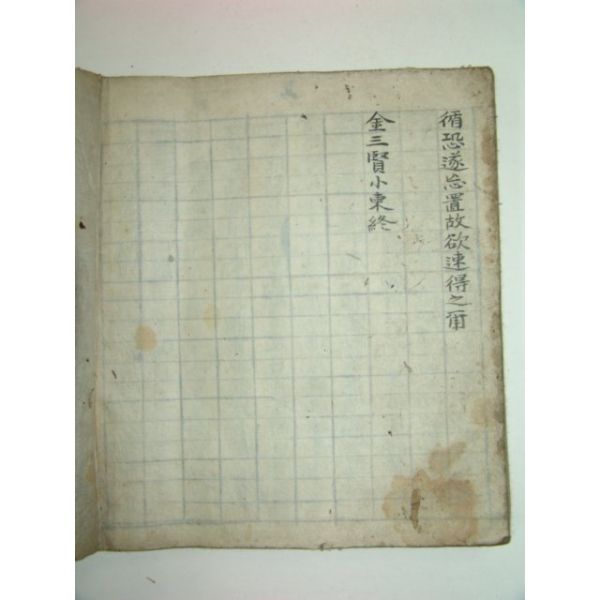 循恐遂忘置故欲速得之甭
金三賢小柬終